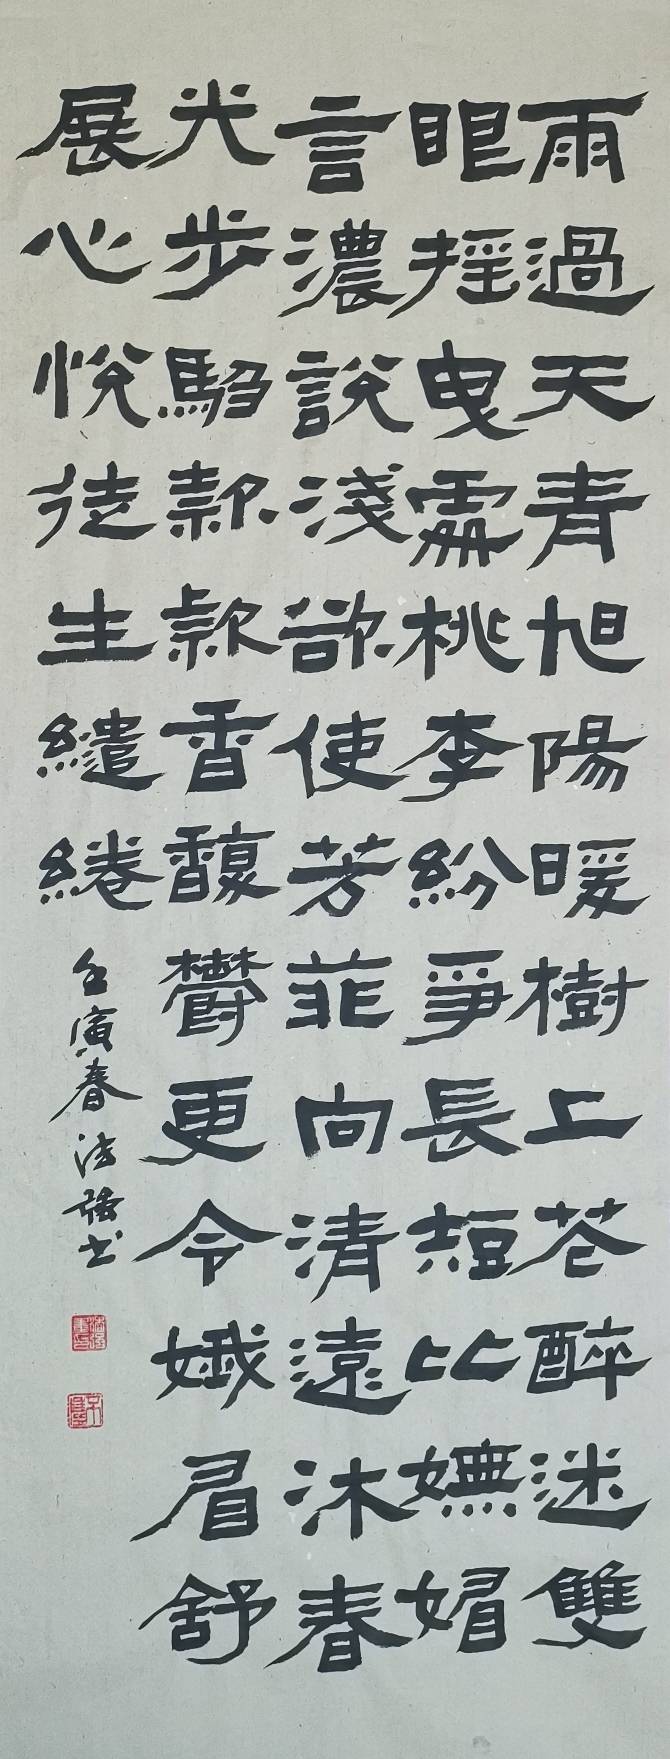 雨過天青旭陽暖樹上花醉迷雙
眼搖曳露桃李紛爭長短比嫵媚
言濃說淺欲使芳菲向清遠沐春
光步駘款款香馥鬱更令娥眉舒
展心悅徒生繾綣
壬寅春法強书